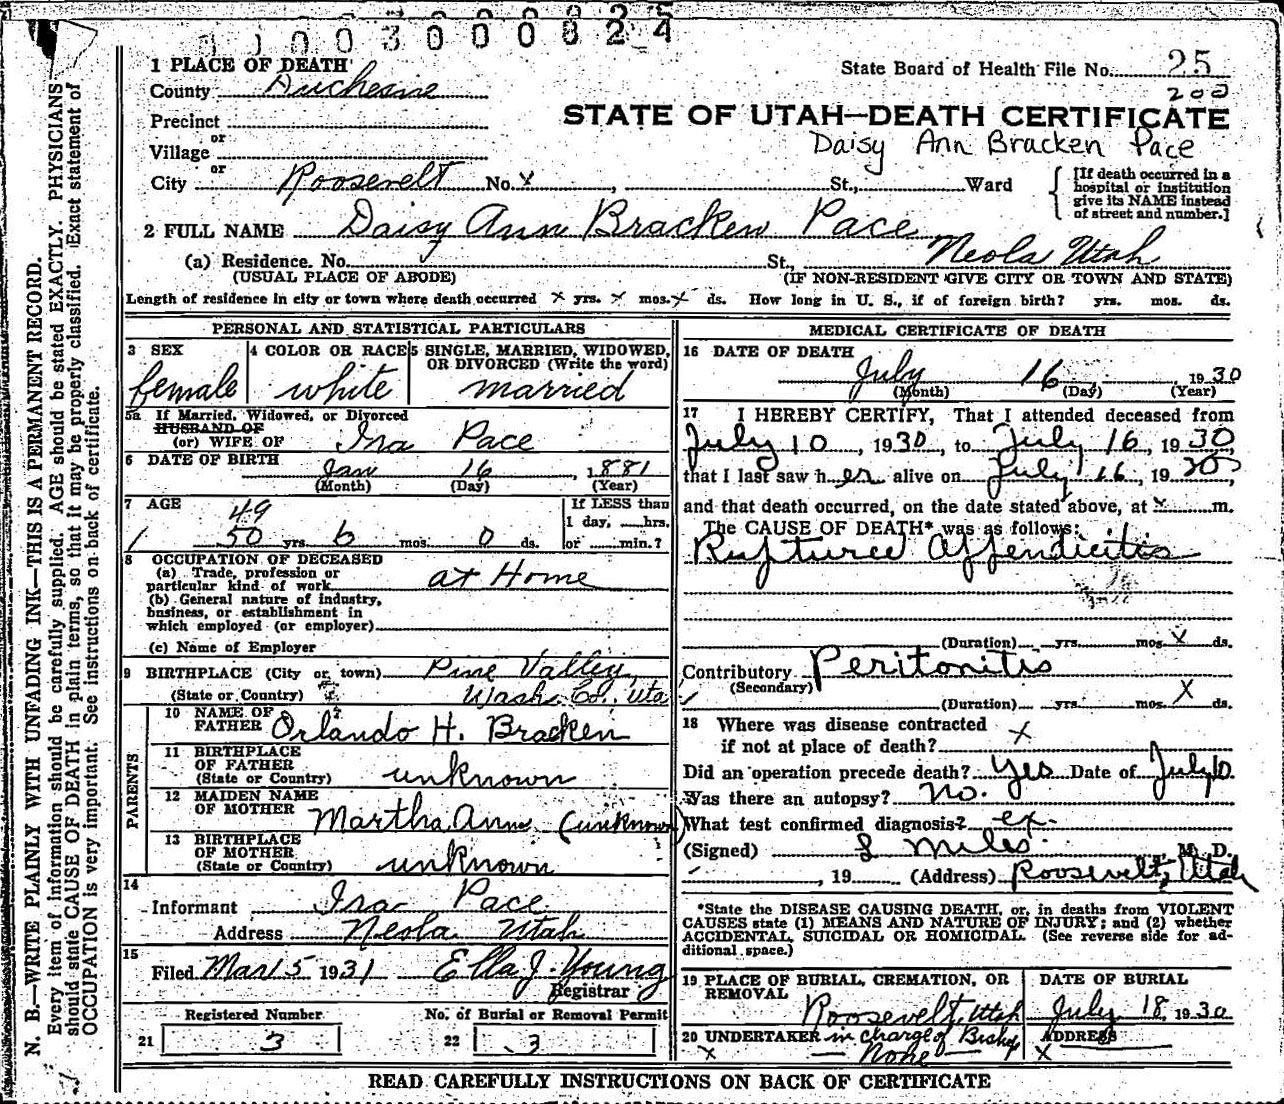 1 1 0 0 3 0 0 0 8 2 4
1 PLACE OF DEATH
County Duchesne
State Board of Health File No. 25
200
Precinct
or
Village
or
City Roosevelt No. x , St., Ward
STATE OF UTAH—DEATH CERTIFICATE
Daisy Ann Bracken Pace
[If death occurred in a
hospital or institution
give its NAME instead
of street and number.]
2 FULL NAME Daisy Ann Bracken Pace
(a) Residence. No. St., Neola Utah
(USUAL PLACE OF ABODE) (IF NON-RESIDENT GIVE CITY OR TOWN AND STATE)
Length of residence in city or town where death occurred x yrs. x mos. x ds. How long in U. S., if of foreign birth? yrs. mos. ds.
PERSONAL AND STATISTICAL PARTICULARS
3 SEX
female
4 COLOR OR RACE
white
5 SINGLE, MARRIED, WIDOWED,
OR DIVORCED (Write the word)
married
5a If Married, Widowed, or Divorced
HUSBAND OF
(or) WIFE OF Ira Pace
6 DATE OF BIRTH Jan 16, 1881
(Month) (Day) (Year)
7 AGE
49
50 yrs. 6 mos. 0 ds.
If LESS than
1 day, hrs.
or min.?
8 OCCUPATION OF DECEASED
(a) Trade, profession or
particular kind of work at Home
(b) General nature of industry,
business, or establishment in
which employed (or employer)
(c) Name of Employer
9 BIRTHPLACE (City or town) Pine Valley,
(State or Country) Wash. Co. Uta
PARENTS
10 NAME OF
FATHER Orlando H. Bracken
11 BIRTHPLACE
OF FATHER
(State or Country) unknown
12 MAIDEN NAME
OF MOTHER Martha Ann (unknown)
13 BIRTHPLACE
OF MOTHER
(State or Country) unknown
14
Informant Ira Pace
Address Neola Utah
15
Filed Mar 5 1931 Ella J. Young
Registrar
Registered Number
21 3
No. of Burial or Removal Permit
22 3
MEDICAL CERTIFICATE OF DEATH
16 DATE OF DEATH
July 16 1930
(Month) (Day) (Year)
17 I HEREBY CERTIFY, That I attended deceased from
July 10, 1930, to July 16, 1930,
that I last saw h er alive on July 16, 1930,
and that death occurred, on the date stated above, at x m.
The CAUSE OF DEATH* was as follows:
Ruptured Appendicitis
(Duration) yrs. mos. x ds.
Contributory Peritonitis
(Secondary)
(Duration) yrs. mos. x ds.
18 Where was disease contracted
if not at place of death? x
Did an operation precede death? yes Date of July 10
Was there an autopsy? no.
What test confirmed diagnosis? ex.
(Signed) Miles. M. D.
, 19 (Address) Roosevelt, Utah
*State the DISEASE CAUSING DEATH, or, in deaths from VIOLENT
CAUSES state (1) MEANS AND NATURE OF INJURY; and (2) whether
ACCIDENTAL, SUICIDAL OR HOMICIDAL. (See reverse side for ad-
ditional space.)
19 PLACE OF BURIAL, CREMATION, OR
REMOVAL
Roosevelt, Utah
DATE OF BURIAL
July 18, 1930
20 UNDERTAKER in charge of Bishop
x — None —
ADDRESS
x
READ CAREFULLY INSTRUCTIONS ON BACK OF CERTIFICATE
N. B.—WRITE PLAINLY WITH UNFADING INK—THIS IS A PERMANENT RECORD.
Every item of information should be carefully supplied. AGE should be stated EXACTLY. PHYSICIANS
should state CAUSE OF DEATH in plain terms, so that it may be properly classified. Exact statement of
OCCUPATION is very important. See instructions on back of certificate.